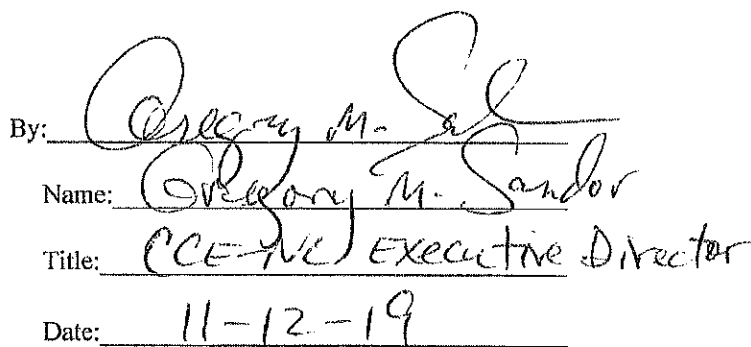 By: Gregory M. Sandor
Name: Gregory M. Sandor
Title: CCE-NC Executive Director
Date: 11-12-19